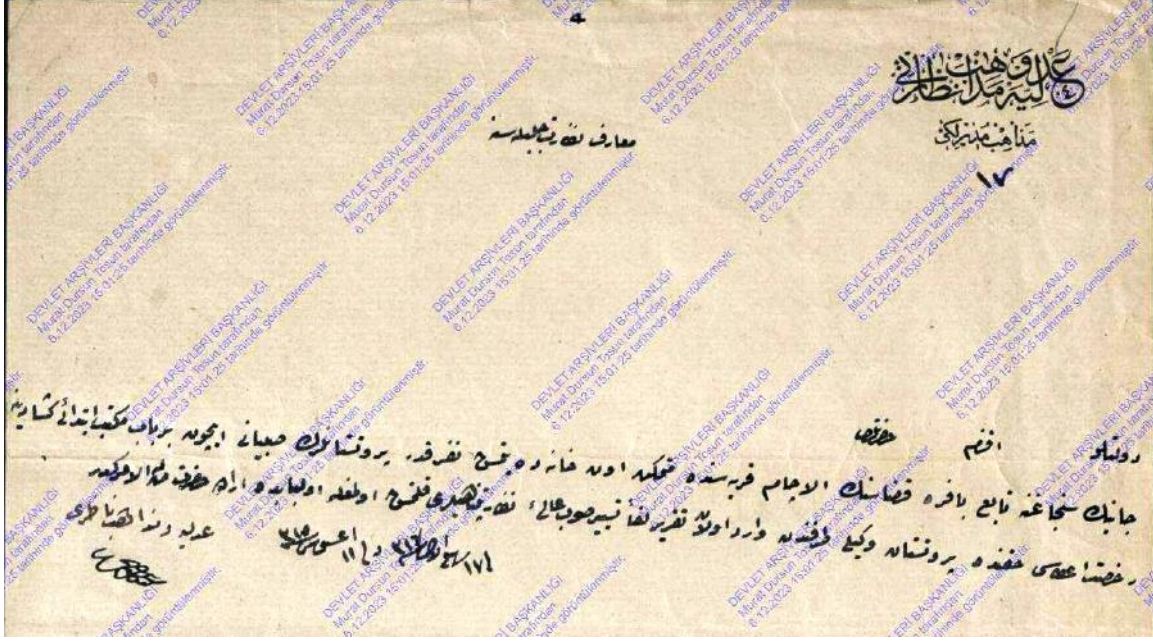 عدليه ومذاهب نظارتی
مذاهب مديرلكی
١٧
معارف نظارت جليله سنه
دولتلو افندم حضرتلری
جانيك سنجاغنه تابع بافره قضاسنك الاچام قريه سنده متمكن اون خانه ده نفر قدر پروتستانلرك صبيانی ايچون بر باب مكتب ابتدائی كشادينه
رخصت اعطاسی حقنده پروتستان وكيلی طرفندن وارد اولان تقرير لفا تسيير صوب عالئ نظارتپناهيلری قلنمش اولمغله اولبابده اراده حضرت من له الامركدر
فی ١٧ ٣١٧ وفی ١١ اغستوس ٣١٥
عدليه ومذاهب ناظری
DEVLET ARŞİVLERİ BAŞKANLIĞI
Murat Dursun Tosun tarafından
6.12.2023 15:01:25 tarihinde görüntülenmiştir.